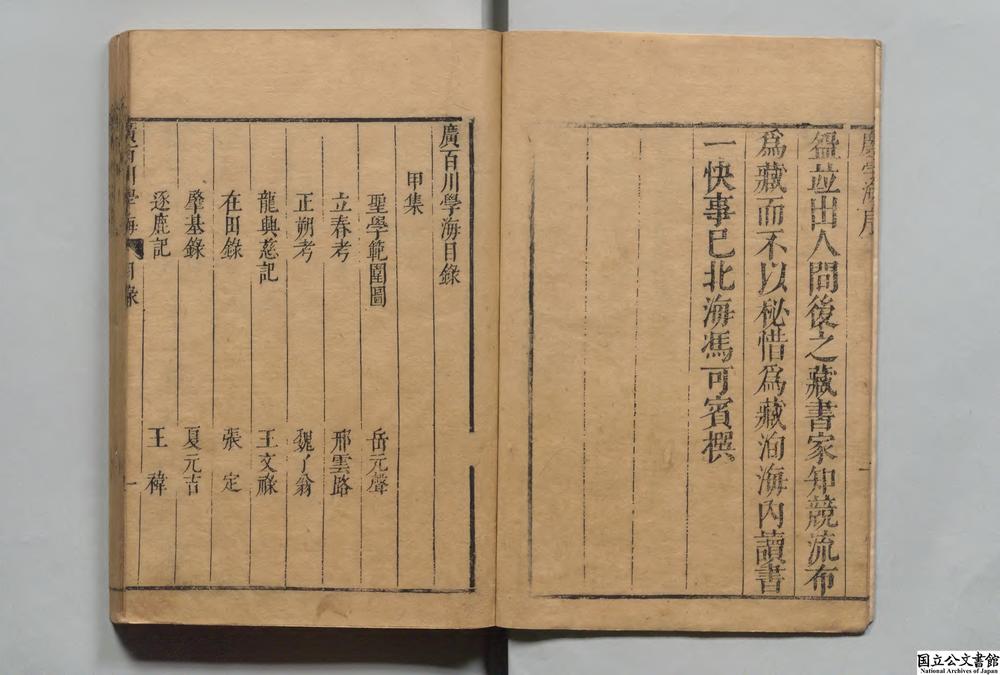 盤並出人間後之藏書家知競流布
爲藏而不以秘惜爲藏洵海內讀書
一快事已北海馮可賓撰
廣百川學海目錄
甲集
聖學範圍圖 岳元聲
立春考 邢雲路
正朔考 魏了翁
龍興慈記 王文祿
在田錄 張定
羣基錄 夏元吉
逐鹿記 王禕
廣百川學海 目錄 一
国立公文書館
National Archives of Japan